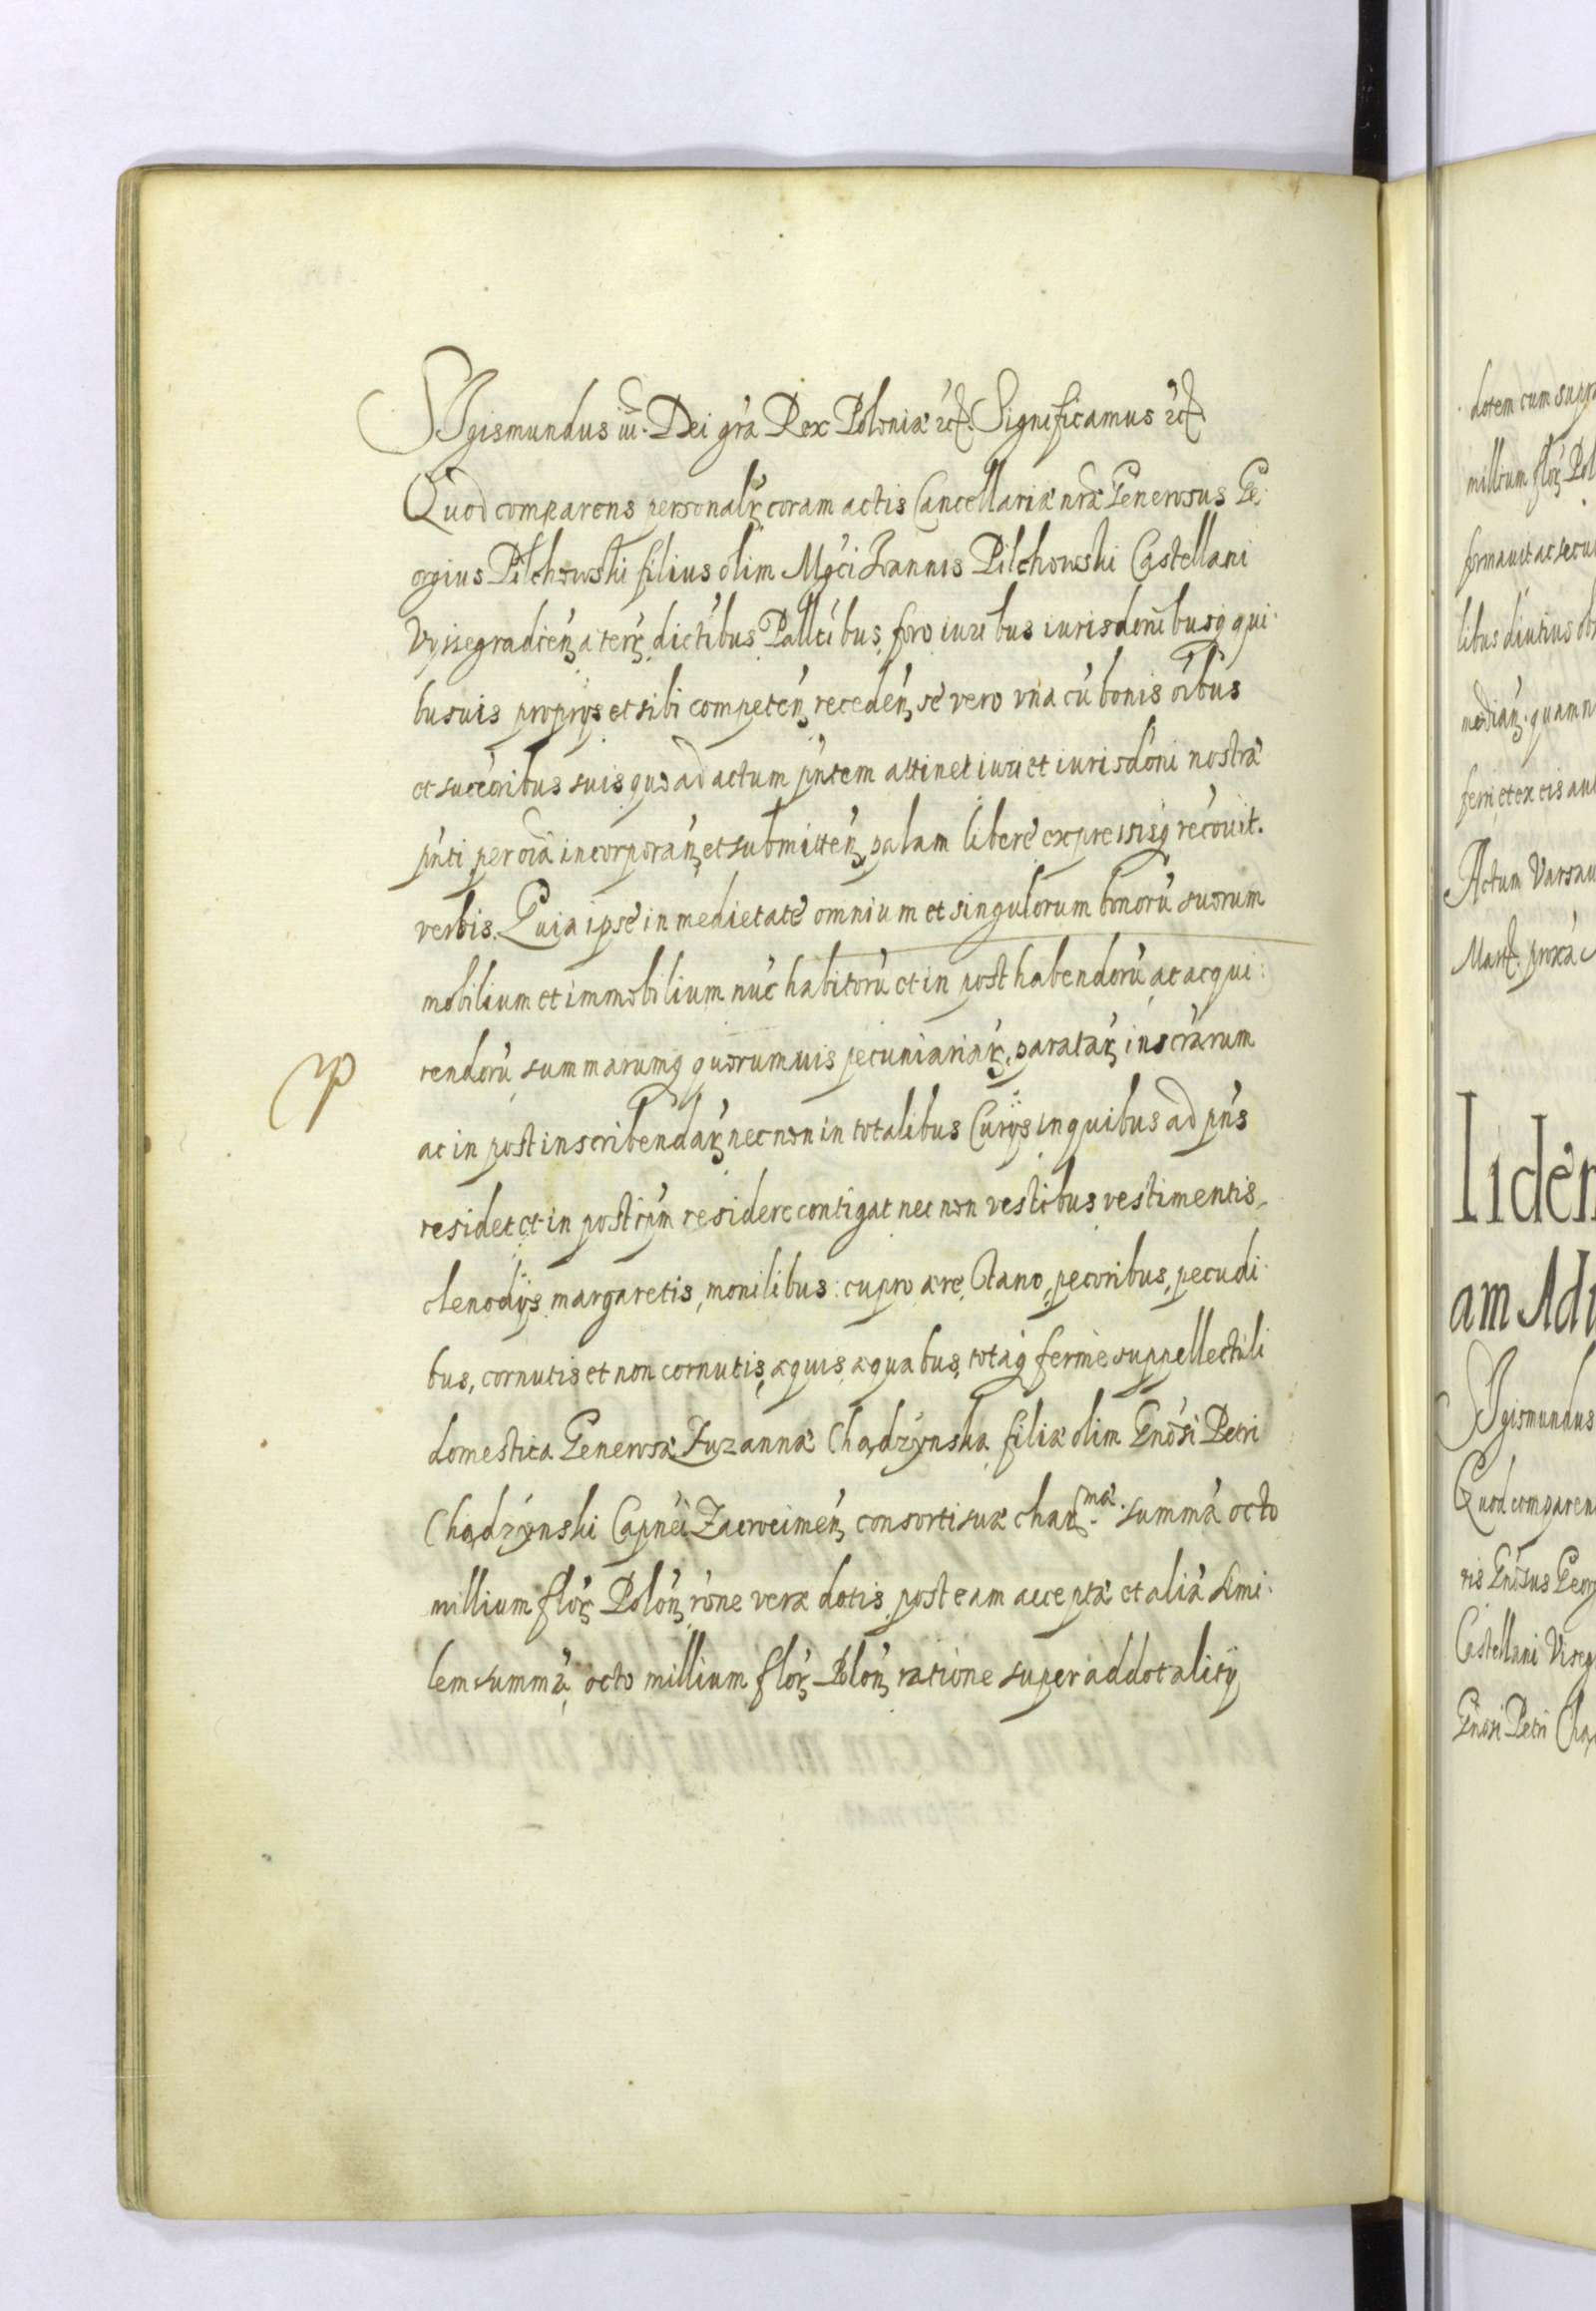 Sigismundus iii. Dei grã Rex Poloniæ etc. Significamus etc.
Quod comparens personalr coram actis Cancellariæ nrã Generosus Ge-
orgius Pilchowski filius olim Mgci Joannis Pilchowski Castellani
Vyssegradien, a terr, dictibus Pallibus, foro iuribus iurisdonibusq qui-
busuis proprys et sibi competen, receden, sè vero vna cũ bonis oibus
et succoribus suis quo ad actum pntem attinet iuri et iurisdoni nostræ
pnti per oia incorporan, et submitten, palam liberè expressisq recouit.
verbis. Quia ipsè in medietatè omnium et singulorum bonorũ suorum
mobilium et immobilium nũc habitorũ et in post habendorũ, ac acqui-
rendorũ summarumq quorumuis pecuniariar, paratar, inscrarum
ac in post inscribendar, nec non in totalibus Curys in quibus ad pns
residet et in postrum residere contigat nec non vestibus vestimentis,
clenodys margaretis, monilibus: cupro ære, stano, pecoribus, pecudi-
bus, cornutis et non cornutis, æquis æquabus, totaq fermè suppellectili
domestica Generosæ Zuzannæ Chądzynska filiæ olim Gnosi Petri
Chądzynski Capnei Zacrocimen, consorti suæ char.mæ summã octo
millium flor, Polon, rone veræ dotis post eam acceptæ et aliã simi-
lem summã, octo millium flor, Polon, ratione superaddotality
dotem cum supr
millium flor Pol
formauit ac secu
libus diutius
quam n
ferri, et ex eis
Actum Varsau
Mart, proxa
Iidem
am Ad
Sigismundus
Quod comparen
Gnosus Geor
Castellani Viseg
Gnosi Petri Chą